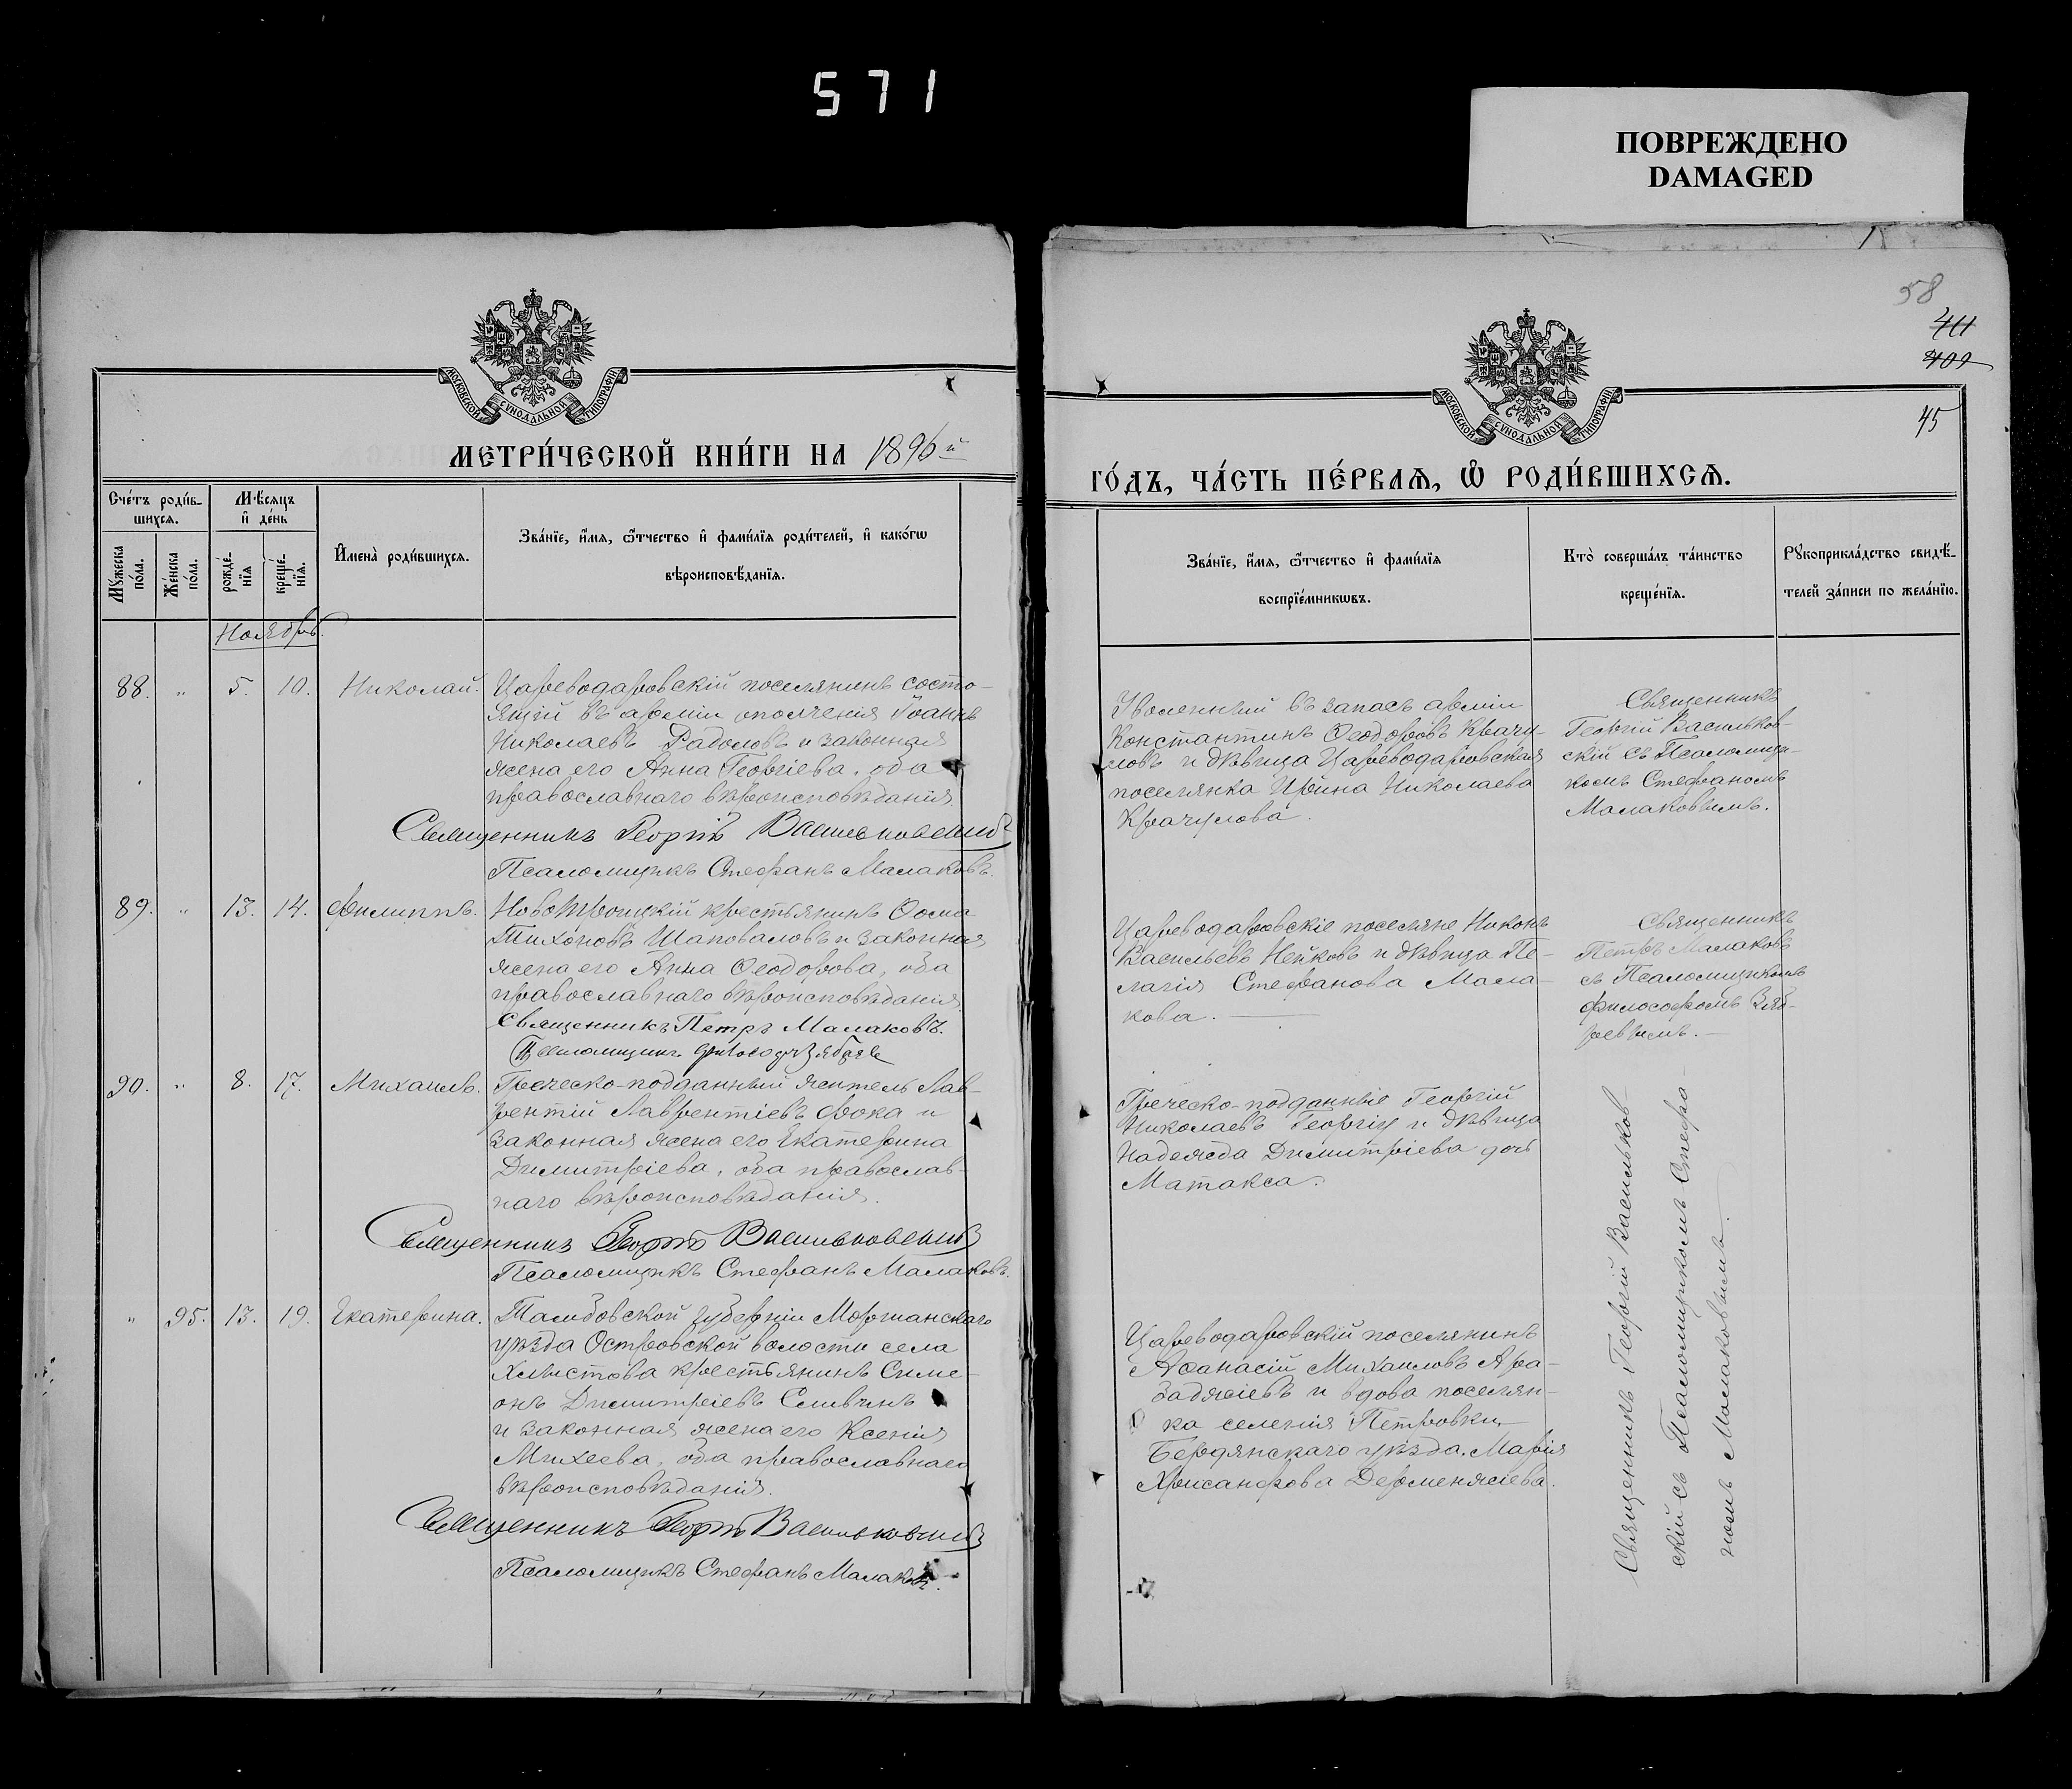 571
ПОВРЕЖДЕНО
DAMAGED
МОСКОВСКОЙ СѴНОДАЛЬНОЙ ТИПОГРАФІИ
МЕТРИ́ЧЕСКОЙ КНИ́ГИ НА 1896й
Сче́тъ роди́в-
шихсѧ.
Мѣ́сѧцъ
и҆ де́нь
Мꙋ́жеска
по́ла.
Же́нска
по́ла.
рожде́-
нїѧ
креще́-
нїѧ.
И҆мена̀ роди́вшихсѧ.
Зва́нїе, и҆́мѧ, ѻ҆́тчество и҆ фами́лїѧ роди́телей, и҆ како́гѡ
вѣроисповѣ́данїѧ.
Ноябрь.
88. " 5. 10. Николай. Цареводаровскій поселянинъ состо-
ящій въ арміи ополченія Іоаннъ
Николаевъ Радоловъ и законная
жена его Анна Георгіева, оба
православнаго вѣроисповѣданія
Священникъ Георгій Васильковскій
Псаломщикъ Стефанъ Малаковъ.
89. " 13. 14. Филиппъ. Новотроицкій крестьянинъ Ѳома
Тихоновъ Шаповаловъ и законная
жена его Анна Ѳеодорова, оба
православнаго вѣроисповѣданія
Священникъ Петръ Малаковъ.
Псаломщикъ
90. " 8. 17. Михаилъ. Греческо-подданный житель Лав-
рентій Лаврентіевъ Фока и
законная жена его Екатерина
Димитріева, оба православ-
наго вѣроисповѣданія.
Священникъ Георгій Васильковскій
Псаломщикъ Стефанъ Малаковъ.
" 95. 13. 19. Екатерина. Тамбовской губерніи Моршанскаго
уѣзда Островской волости села
Хлыстова крестьянинъ Симе-
онъ Димитріевъ Сливинъ
и законная жена его Ксенія
Михеева, оба православнаго
вѣроисповѣданія.
Священникъ Георгій Васильковскій
Псаломщикъ Стефанъ Малаковъ.
58
411
409
45
МОСКОВСКОЙ СѴНОДАЛЬНОЙ ТИПОГРАФІИ
ГО́ДЪ, ЧА́СТЬ ПЕ́РВАѦ, Ѽ РОДИ́ВШИХСѦ.
Зва́нїе, и҆́мѧ, ѻ҆́тчество и҆ фами́лїѧ
воспрїе́мникѡвъ.
Кто̀ соверша́лъ та́инство
креще́нїѧ.
Рꙋкоприкла́дство свидѣ́-
телей за́писи по жела́нїю.
Уволенный въ запасъ арміи
Константинъ Ѳеодоровъ Крачу-
ловъ и дѣвица Цареводаровская
поселянка Ирина Николаева
Крачулова.
Священникъ
Георгій Васильков-
скій съ Псаломщи-
комъ Стефаномъ
Малаковымъ.
Цареводаровскіе поселяне Никонъ
Васильевъ Нейковъ и дѣвица Пе-
лагія Стефанова Мала-
кова.
Священникъ
Петръ Малаковъ
съ Псаломщикомъ
Философомъ Зяб-
ревымъ.
Греческо-подданные Георгій
Николаевъ Георгіу и дѣвица
Надежда Димитріева дочь
Матакса.
Цареводаровскій поселянинъ
Аѳанасій Михаиловъ Ара-
баджіевъ и вдова поселян-
ка селенія Петровки,
Бердянскаго уѣзда, Марія
Хрисанфова Дерменжіева.
Священникъ Георгій Васильков-
скій съ Псаломщикомъ Стефа-
номъ Малаковымъ.